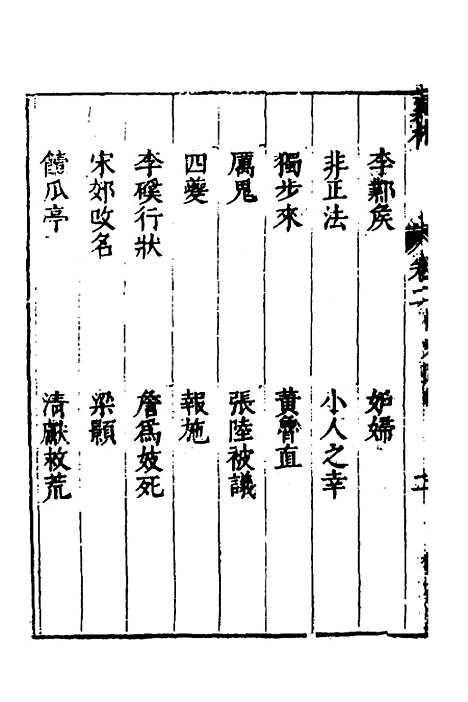 李鄴矦 妬婦
非正法 小人之幸
獨步來 黃魯直
厲鬼 張陸被議
四夔 報施
李磎行狀 詹爲妓死
宋郊改名 梁顥
饋瓜亭 清獻救荒
卷二